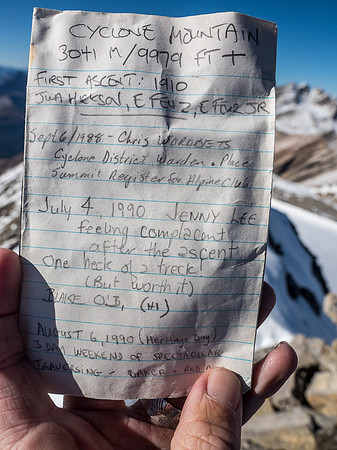 CYCLONE MOUNTAIN
3041 M/9979 FT +
FIRST ASCENT: 1910
JWA HICKSON, E FEUZ, E FEUZ JR
Sept 6/1988 - Chris
Cyclone District Warden. Places
Summit Register for Alpine Club.
July 4, 1990 JENNY LEE
feeling complacent
after the ascent
One heck of a treck!
(But worth it)
BLAKE
AUGUST 6, 1990 (Heritage Day)
3 DAY WEEKEND OF SPECTACULAR
TRAVERSING - BAKER - RED